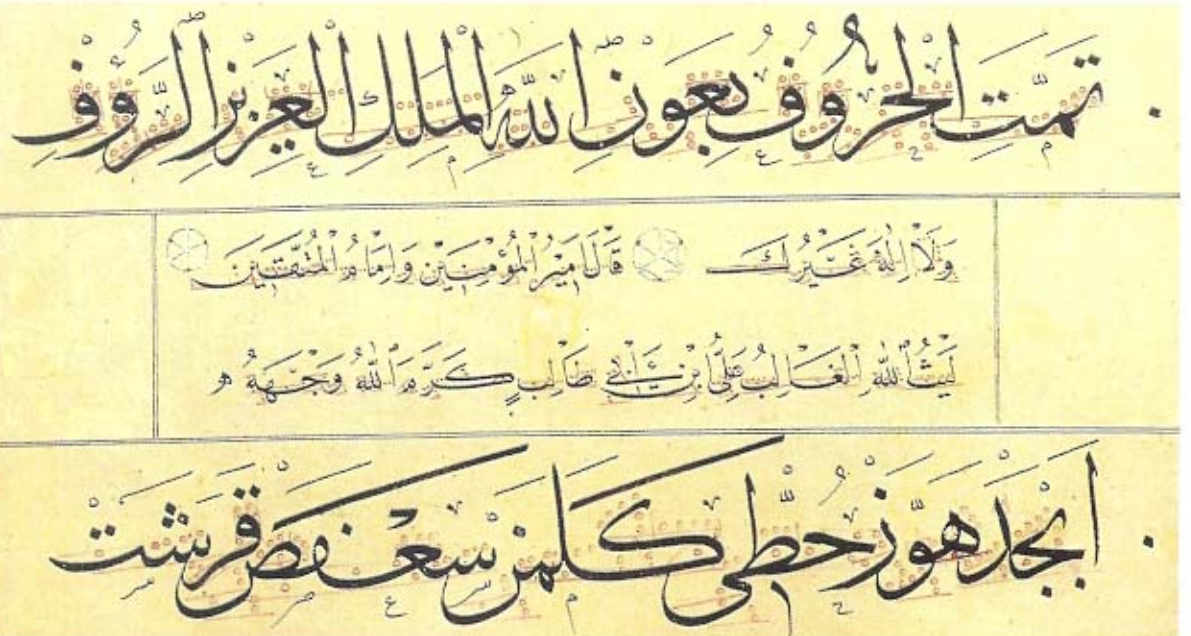 تَمَّتِ الْحُرُوفُ بِعَوْنِ اللّٰهِ الْمَلِكِ الْعَزِيزِ الرَّؤُفِ
وَلَا إِلٰهَ غَيْرُكَ قَالَ امِيرُ الْمُؤْمِنِينَ وَاِمَامُ الْمُتَّقِينَ
لَيْثُ اللّٰهِ الْغَالِبُ عَلِىُّ ابْنُ اَبِى طَالِبٍ كَرَّمَ اللّٰهُ وَجْهَهُ
ابْجَدْ هَوَّزْ حُطِّى كَلَمَنْ سَعْفَصْ قَرَشَتْ